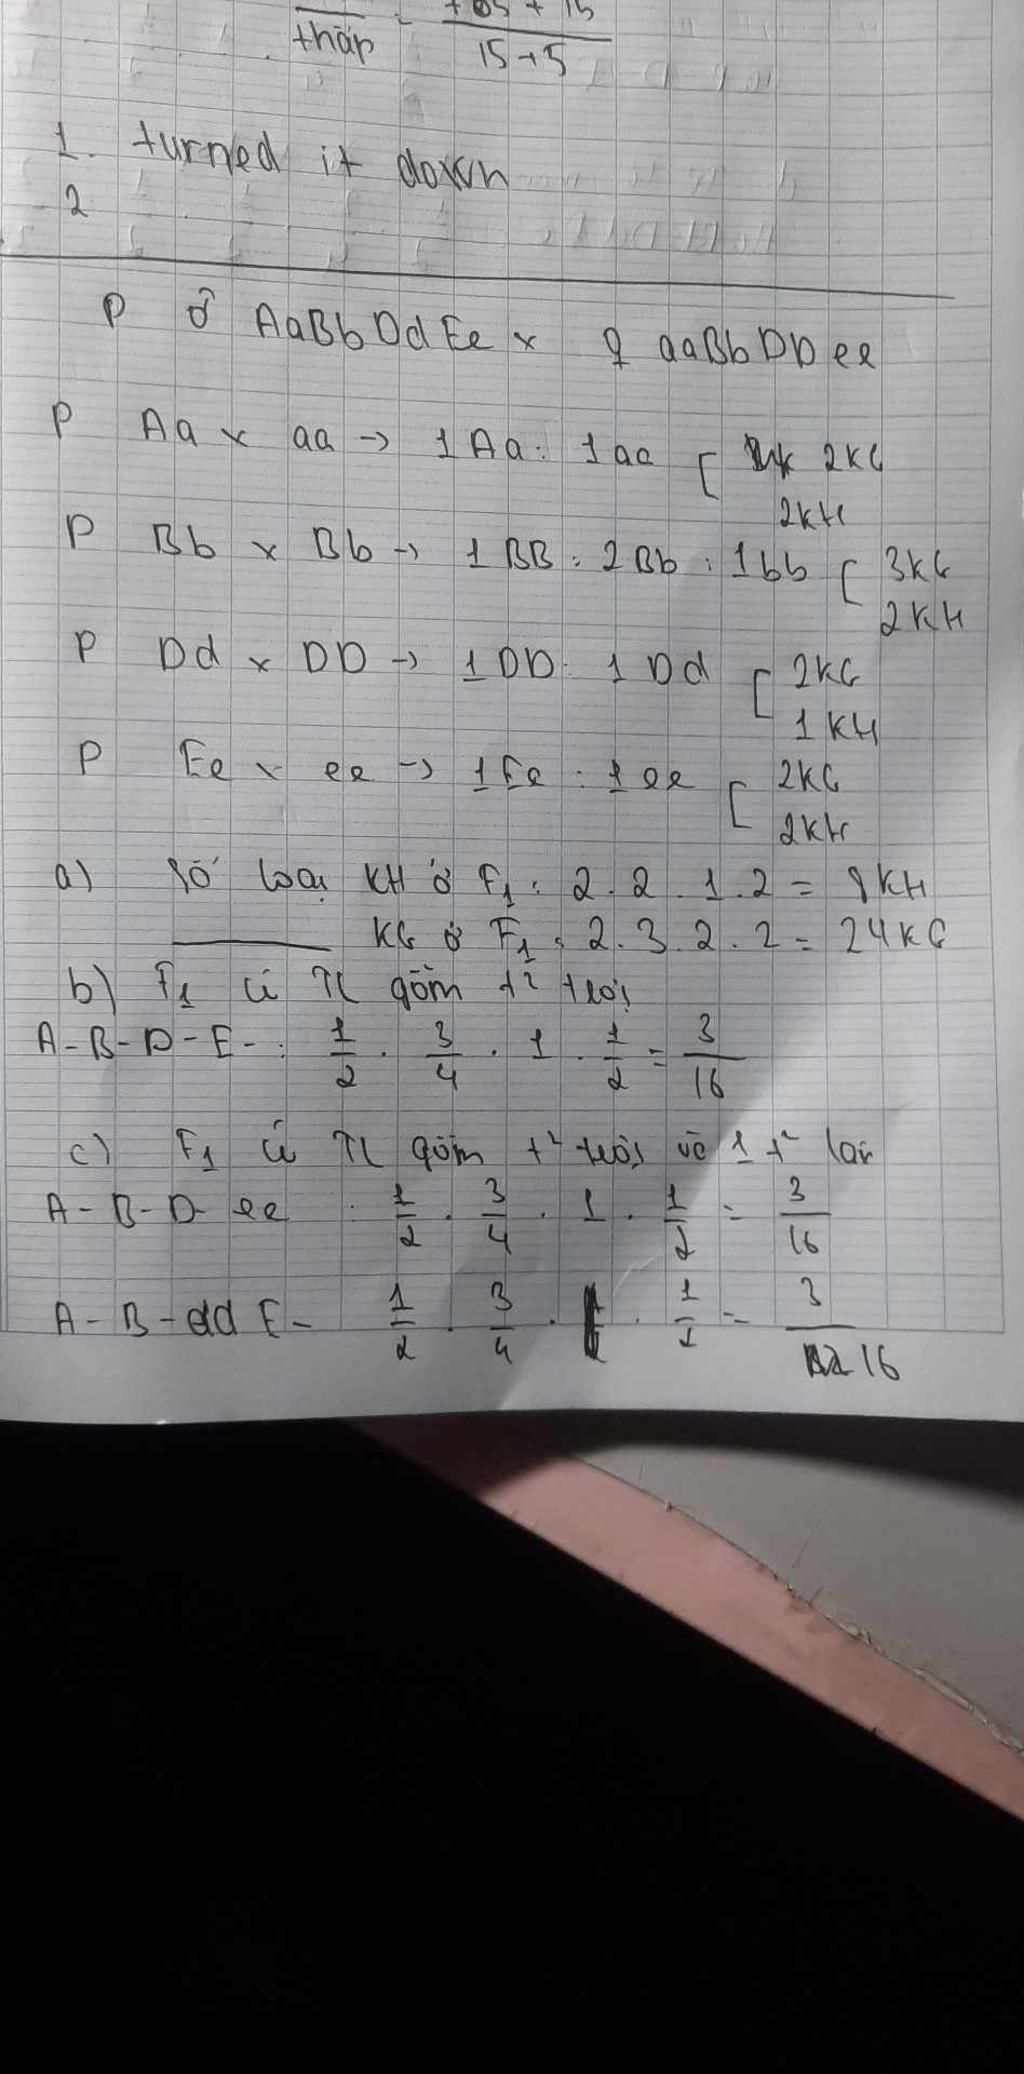 thấp = 105 + 15
15 + 5
1. turned it down
2
P ♂ AaBbDdEe × ♀ aaBbDDee
P Aa × aa → 1Aa : 1aa [ 2KG
2KH
P Bb × Bb → 1BB : 2Bb : 1bb [ 3KG
2KH
P Dd × DD → 1DD : 1Dd [ 2KG
1KH
P Ee × ee → 1Ee : 1ee [ 2KG
2KH
a) Số loại KH ở F1 : 2.2.1.2 = 8KH
KG ở F1 : 2.3.2.2 = 24KG
b) F1 có TL gồm t² trội
A-B-D-E- : 1/2 . 3/4 . 1 . 1/2 = 3/16
c) F1 có TL gồm t² trội và 1 t² lặn
A-B-D-ee : 1/2 . 3/4 . 1 . 1/2 = 3/16
A-B-ddE- 1/2 . 3/4 . . 1/2 = 3/16